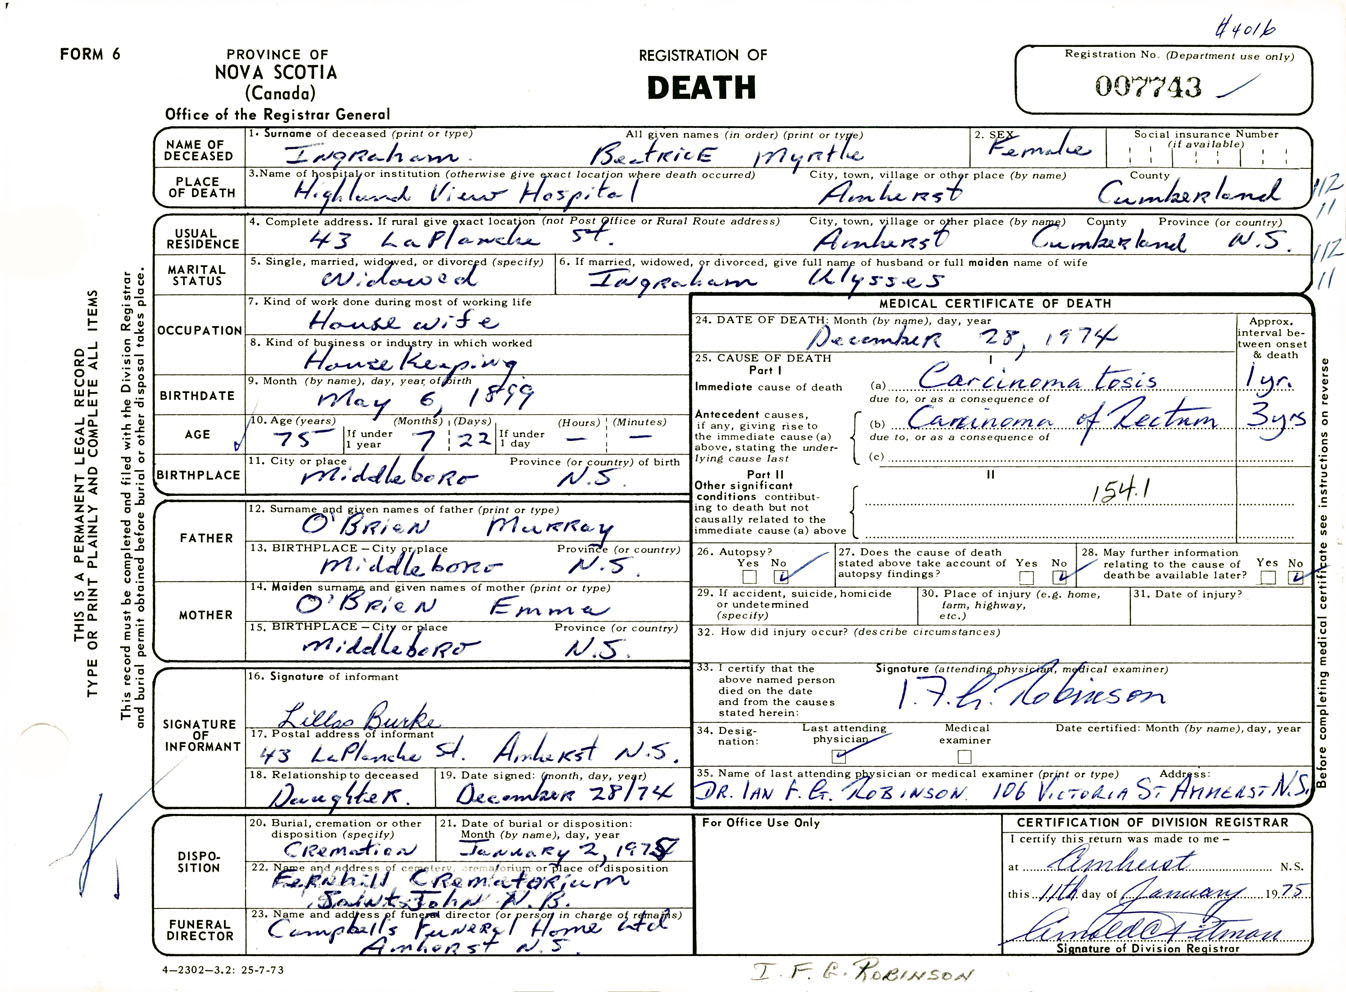 #4016
FORM 6
PROVINCE OF
NOVA SCOTIA
(Canada)
Office of the Registrar General
REGISTRATION OF
DEATH
Registration No. (Department use only)
007743
NAME OF DECEASED
1. Surname of deceased (print or type) All given names (in order) (print or type)
Ingraham. Beatrice Myrthe
2. SEX
Female
Social insurance Number
(if available)
PLACE OF DEATH
3. Name of hospital or institution (otherwise give exact location where death occurred) City, town, village or other place (by name) County
Highland View Hospital Amherst Cumberland
112
11
USUAL RESIDENCE
4. Complete address. If rural give exact location (not Post Office or Rural Route address) City, town, village or other place (by name) County Province (or country)
43 LaPlanche St. Amherst Cumberland N.S.
112
11
MARITAL STATUS
5. Single, married, widowed, or divorced (specify)
Widowed
6. If married, widowed, or divorced, give full name of husband or full maiden name of wife
Ingraham Ulysses
OCCUPATION
7. Kind of work done during most of working life
Housewife
8. Kind of business or industry in which worked
House Keeping
BIRTHDATE
9. Month (by name), day, year of birth
May 6, 1899
AGE
10. Age (years) If under 1 year (Months) (Days) If under 1 day (Hours) (Minutes)
75 7 22 — —
BIRTHPLACE
11. City or place Province (or country) of birth
Middleboro N.S.
FATHER
12. Surname and given names of father (print or type)
O'Brien Murray
13. BIRTHPLACE – City or place Province (or country)
Middleboro N.S.
MOTHER
14. Maiden surname and given names of mother (print or type)
O'Brien Emma
15. BIRTHPLACE – City or place Province (or country)
Middleboro N.S.
SIGNATURE OF INFORMANT
16. Signature of informant
Lillas Burke
17. Postal address of informant
43 LaPlanche St. Amherst N.S.
18. Relationship to deceased
Daughter.
19. Date signed: (month, day, year)
December 28/74
DISPO-SITION
20. Burial, cremation or other disposition (specify)
Cremation
21. Date of burial or disposition: Month (by name), day, year
January 2, 1975
22. Name and address of cemetery, crematorium or place of disposition
Fernhill Crematorium
Saint John N.B.
FUNERAL DIRECTOR
23. Name and address of funeral director (or person in charge of remains)
Campbells Funeral Home Ltd
Amherst N.S.
MEDICAL CERTIFICATE OF DEATH
24. DATE OF DEATH: Month (by name), day, year
December 28, 1974
Approx. interval between onset & death
25. CAUSE OF DEATH
Part I
I
Immediate cause of death
(a) Carcinomatosis 1 yr.
due to, or as a consequence of
Antecedent causes, if any, giving rise to the immediate cause (a) above, stating the underlying cause last
(b) Carcinoma of Rectum 3 yrs
due to, or as a consequence of
(c)
Part II
II
Other significant conditions contributing to death but not causally related to the immediate cause (a) above
154.1
26. Autopsy?
Yes No
27. Does the cause of death stated above take account of autopsy findings?
Yes No
28. May further information relating to the cause of death be available later?
Yes No
29. If accident, suicide, homicide or undetermined (specify)
30. Place of injury (e.g. home, farm, highway, etc.)
31. Date of injury?
32. How did injury occur? (describe circumstances)
33. I certify that the above named person died on the date and from the causes stated herein:
Signature (attending physician, medical examiner)
I.F.G. Robinson
34. Designation:
Last attending physician
Medical examiner
Date certified: Month (by name), day, year
35. Name of last attending physician or medical examiner (print or type) Address:
Dr. Ian F. G. Robinson. 106 Victoria St Amherst N.S.
For Office Use Only
CERTIFICATION OF DIVISION REGISTRAR
I certify this return was made to me –
at Amherst N.S.
this 11th day of January 1975
Arnold C Pitman
Signature of Division Registrar
THIS IS A PERMANENT LEGAL RECORD
TYPE OR PRINT PLAINLY AND COMPLETE ALL ITEMS
This record must be completed and filed with the Division Registrar
and burial permit obtained before burial or other disposal takes place.
Before completing medical certificate see instructions on reverse
4–2302–3.2: 25-7-73
I. F. G. Robinson